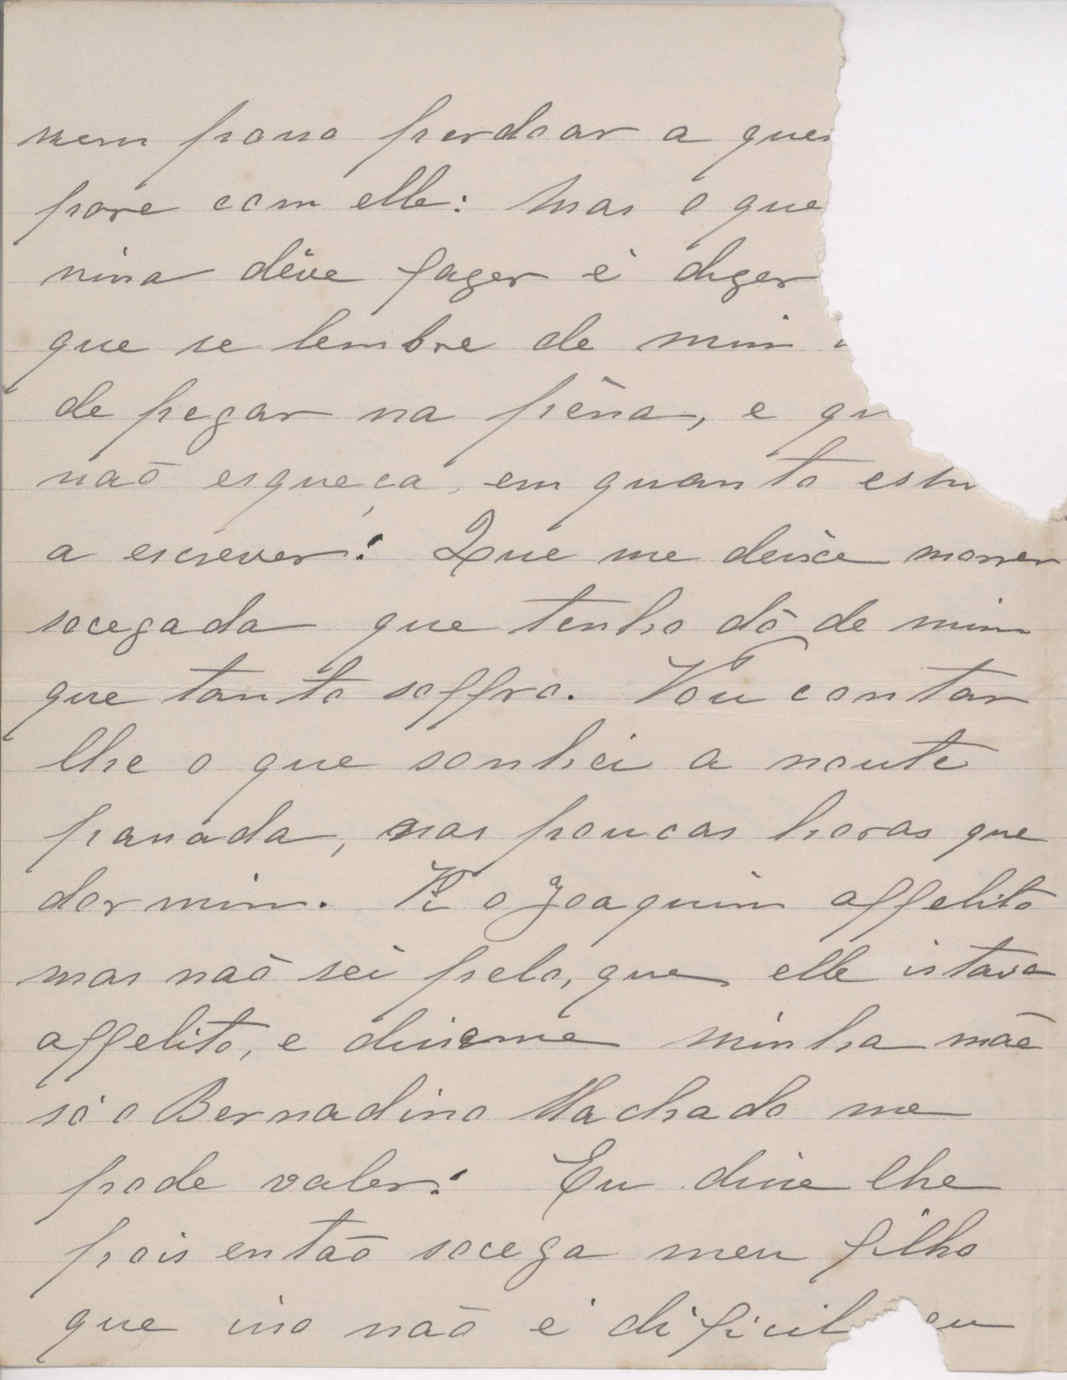 nem posso perdoar a quem
fosse com elle: Mas o que
nina dêve fazer é dizer
que se lembre de mim
de pegar na pêna, e qu
naõ esqueça, em quanto estu
a escrever: Que me deixe morrer
socegada que tenho dó de mim
que tanto soffro. Vou contar
lhe o que sonhei a noute
passada, nas poucas horas que
dormim. Vi o Joaquim affelito
mas naõ sei pelo, que elle istava
affelito, e disseme minha mãe
só o Bernadino Machado me
pode valer: Eu disse lhe
pois então socega meu filho
que isso naõ é dificil eu